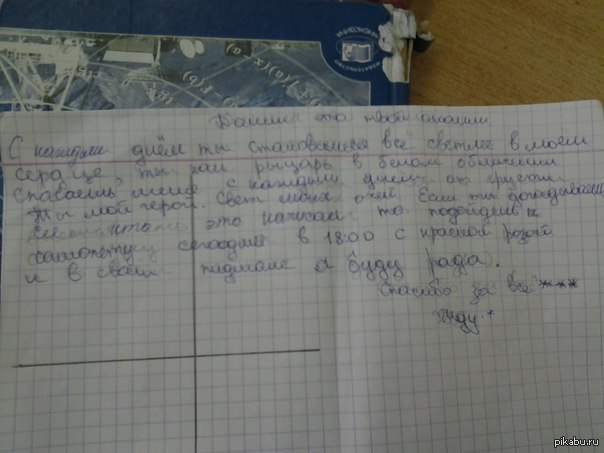 МНЕМОЗИНА
это твой
С каждым днём ты становишься всё светлее в моем
сердце, ты как рыцарь в белом обличии
спасаешь меня с каждым днем от грусти
Ты мой герой. Свет моих очей. Если ты догадываешься
кто это написал то подойдешь к
сегодня в 18:00 с красной розой
и в своём пиджаке я буду рада).
Спасибо за всё ***
Жду.*
pikabu.ru